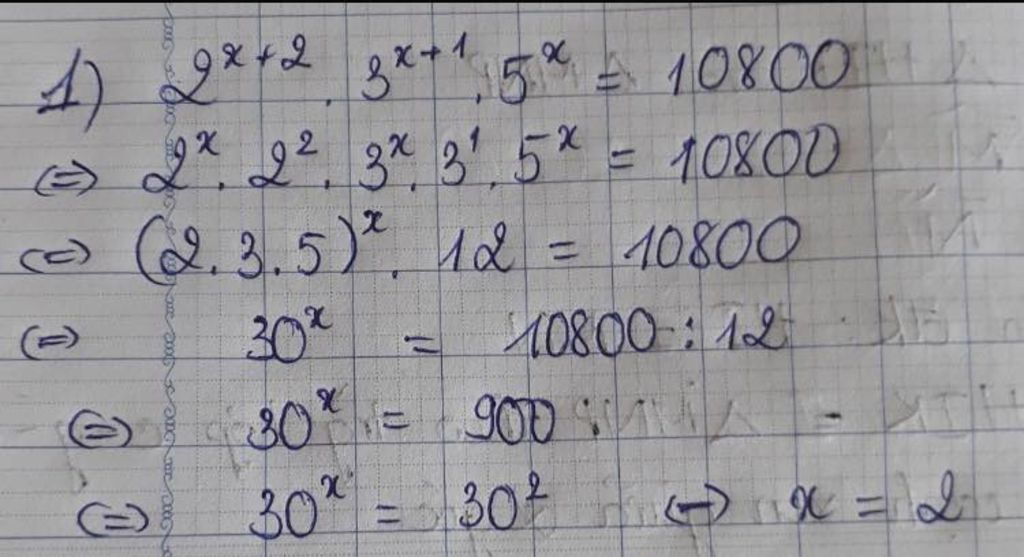 1) 2^{x+2} . 3^{x+1} . 5^x = 10800
⇔ 2^x . 2^2 . 3^x . 3^1 . 5^x = 10800
⇔ (2 . 3 . 5)^x . 12 = 10800
⇔ 30^x = 10800 : 12
⇔ 30^x = 900
⇔ 30^x = 30^2 ↔ x = 2